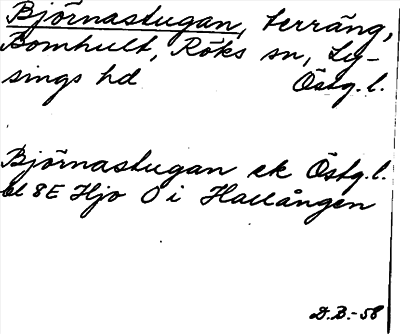 Björnastugan, terräng,
Bomhult, Röks sn, Ly-
sings hd Östg. l.
Björnastugan ek Östg. l.
bl 8E Hjo O i Hallången
D.B.-58